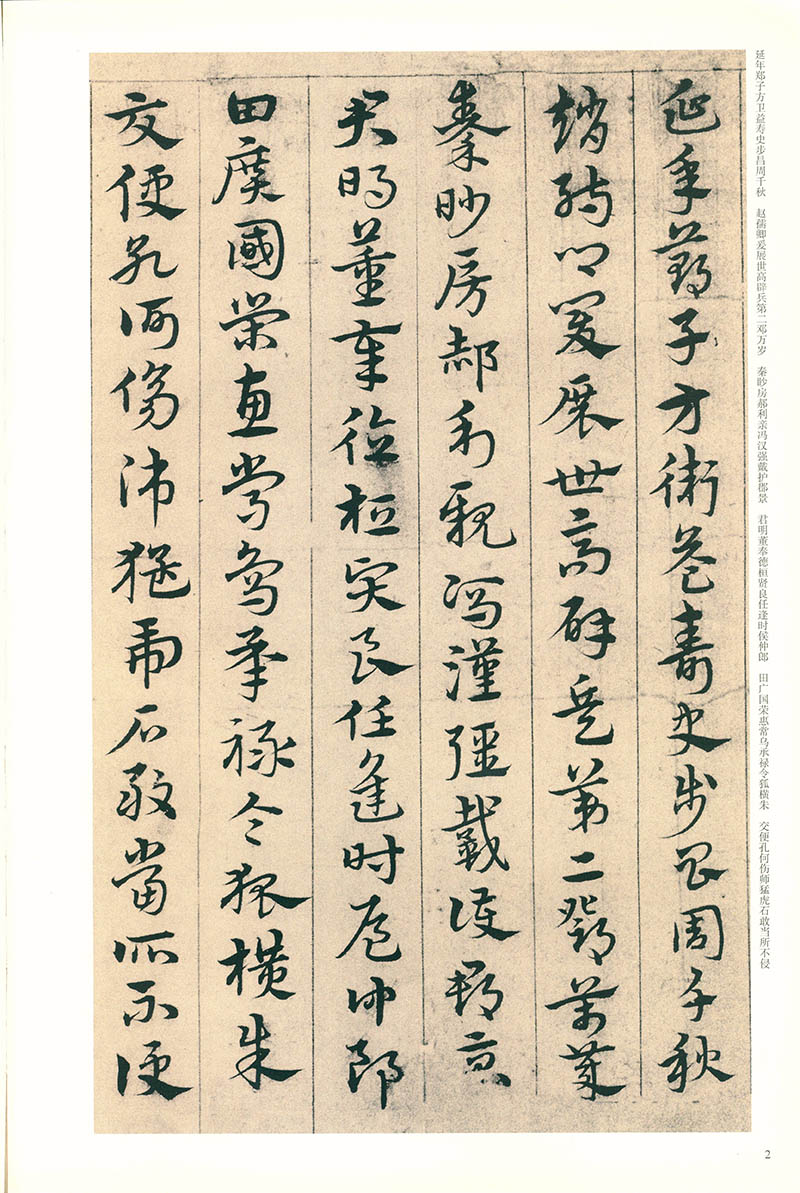 延年鄭子方衛益壽史步昌周千秋
趙孺卿爰展世高辟兵第二鄧萬歲
秦眇房郝利親馮漢彊戴護郡景
君明董奉德桓賢良任逢時侯仲郎
田廣國榮惠常烏承祿令狐橫朱
交便孔何傷師猛虎石敢當所不侵
延年郑子方卫益寿史步昌周千秋 赵孺卿爰展世高辟兵第二邓万岁 秦眇房郝利亲冯汉强戴护郡景 君明董奉德桓贤良任逢时侯仲郎 田广国荣惠常乌承禄令狐横朱 交便孔何伤师猛虎石敢当所不侵
2